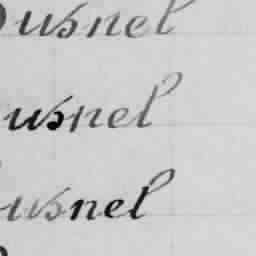 Dusnel
usnel
usnel